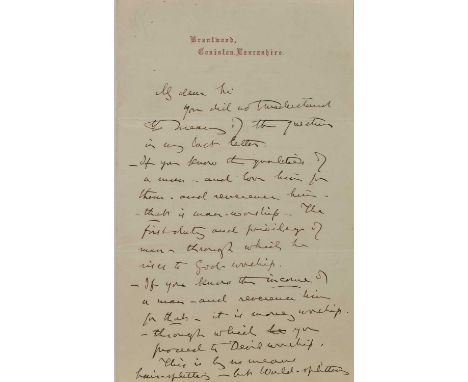 Brantwood,
Coniston, Lancashire.
My dear Sir
you did not understand
the meaning of the question
in my last letter.
– If you know the qualities of
a man – and love him for
them – and reverence him –
– that is man-worship – The
first duty and privilege of
man – through which he
rises to God-worship.
– If you know the income of
a man – and reverence him
for that – it is money worship.
– through which you
proceed to Devil worship.
This is by no means
hairsplitting – but World-splitting